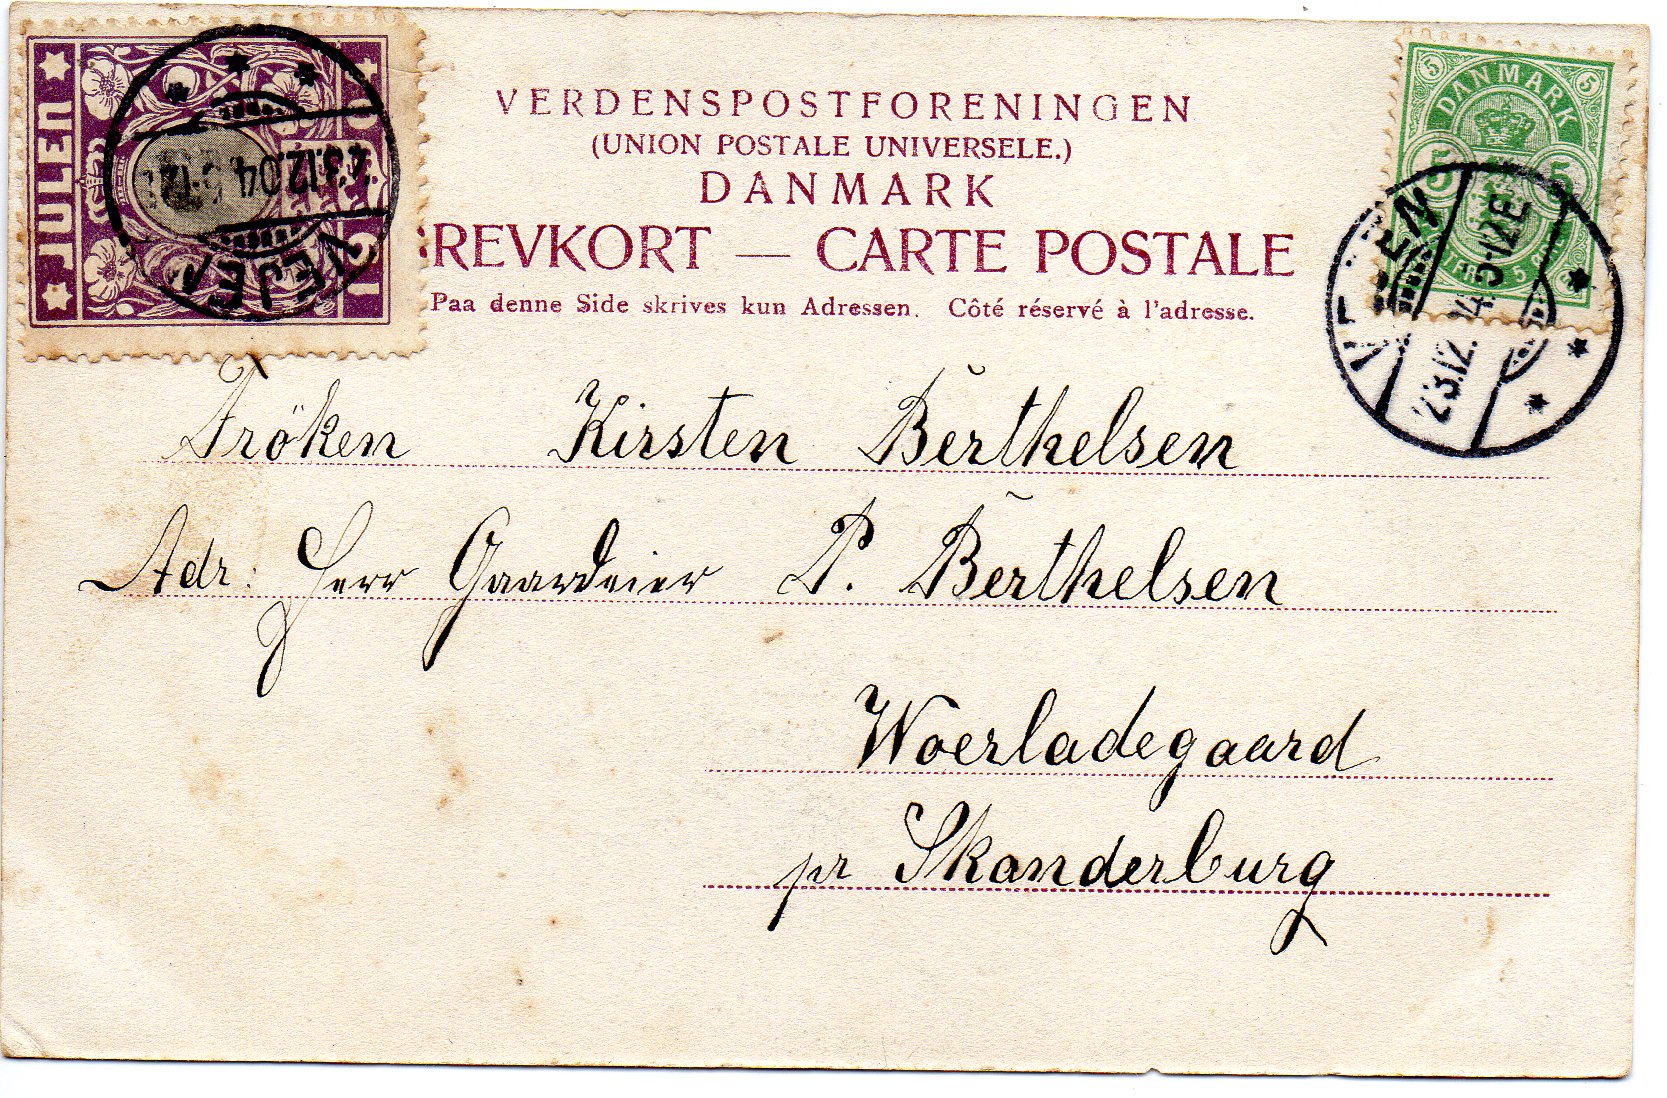 JULEN
1904
VEJEN
23.12.04
VERDENSPOSTFORENINGEN
(UNION POSTALE UNIVERSELE.)
DANMARK
BREVKORT — CARTE POSTALE
Paa denne Side skrives kun Adressen. Côté réservé à l'adresse.
5 5
DANMARK
5 5
VEJEN
23.12. 4 5-12E
Fröken Kirsten Berthelsen
Adr: Herr Gaardeier P. Berthelsen
Woerladegaard
pr Skanderburg